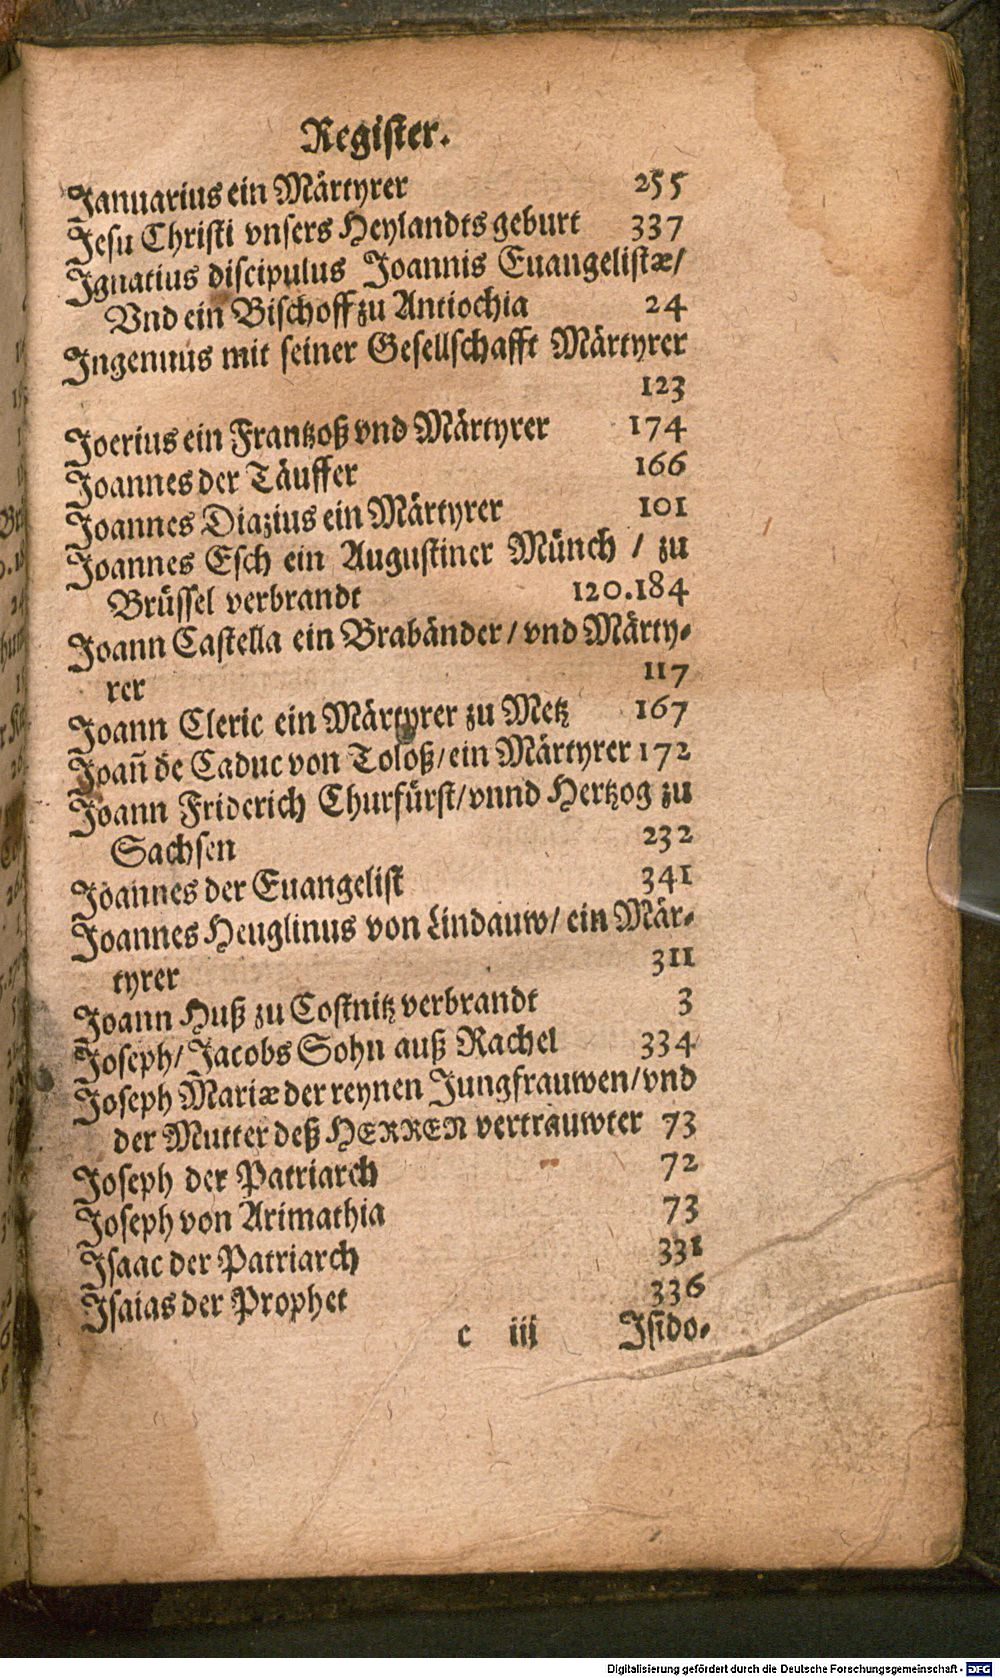 Register.
Januarius ein Märtyrer 255
Jesu Christi vnsers Heylandts geburt 337
Ignatius discipulus Joannis Euangelistæ/
Vnd ein Bischoff zu Antiochia 24
Ingenuus mit seiner Gesellschafft Märtyrer
123
Joerius ein Frantzoß vnd Märtyrer 174
Joannes der Täuffer 166
Joannes Diazius ein Märtyrer 101
Joannes Esch ein Augustiner Münch / zu
Brüssel verbrandt 120.184
Joann Castella ein Brabänder / vnd Märty-
rer 117
Joann Cleric ein Märtyrer zu Metz 167
Joañ de Caduc von Toloß/ ein Märtyrer 172
Joann Friderich Churfürst/ vnnd Hertzog zu
Sachsen 232
Joannes der Euangelist 341
Joannes Heuglinus von Lindauw/ ein Mär-
tyrer 311
Joann Huß zu Costnitz verbrandt 3
Joseph/ Jacobs Sohn auß Rachel 334
Joseph Mariæ der reynen Jungfrauwen/ vnd
der Mutter deß HERREN vertrauwter 73
Joseph der Patriarch 72
Joseph von Arimathia 73
Isaac der Patriarch 331
Isaias der Prophet 336
c iii Isido-
Digitalisierung gefördert durch die Deutsche Forschungsgemeinschaft - DFG